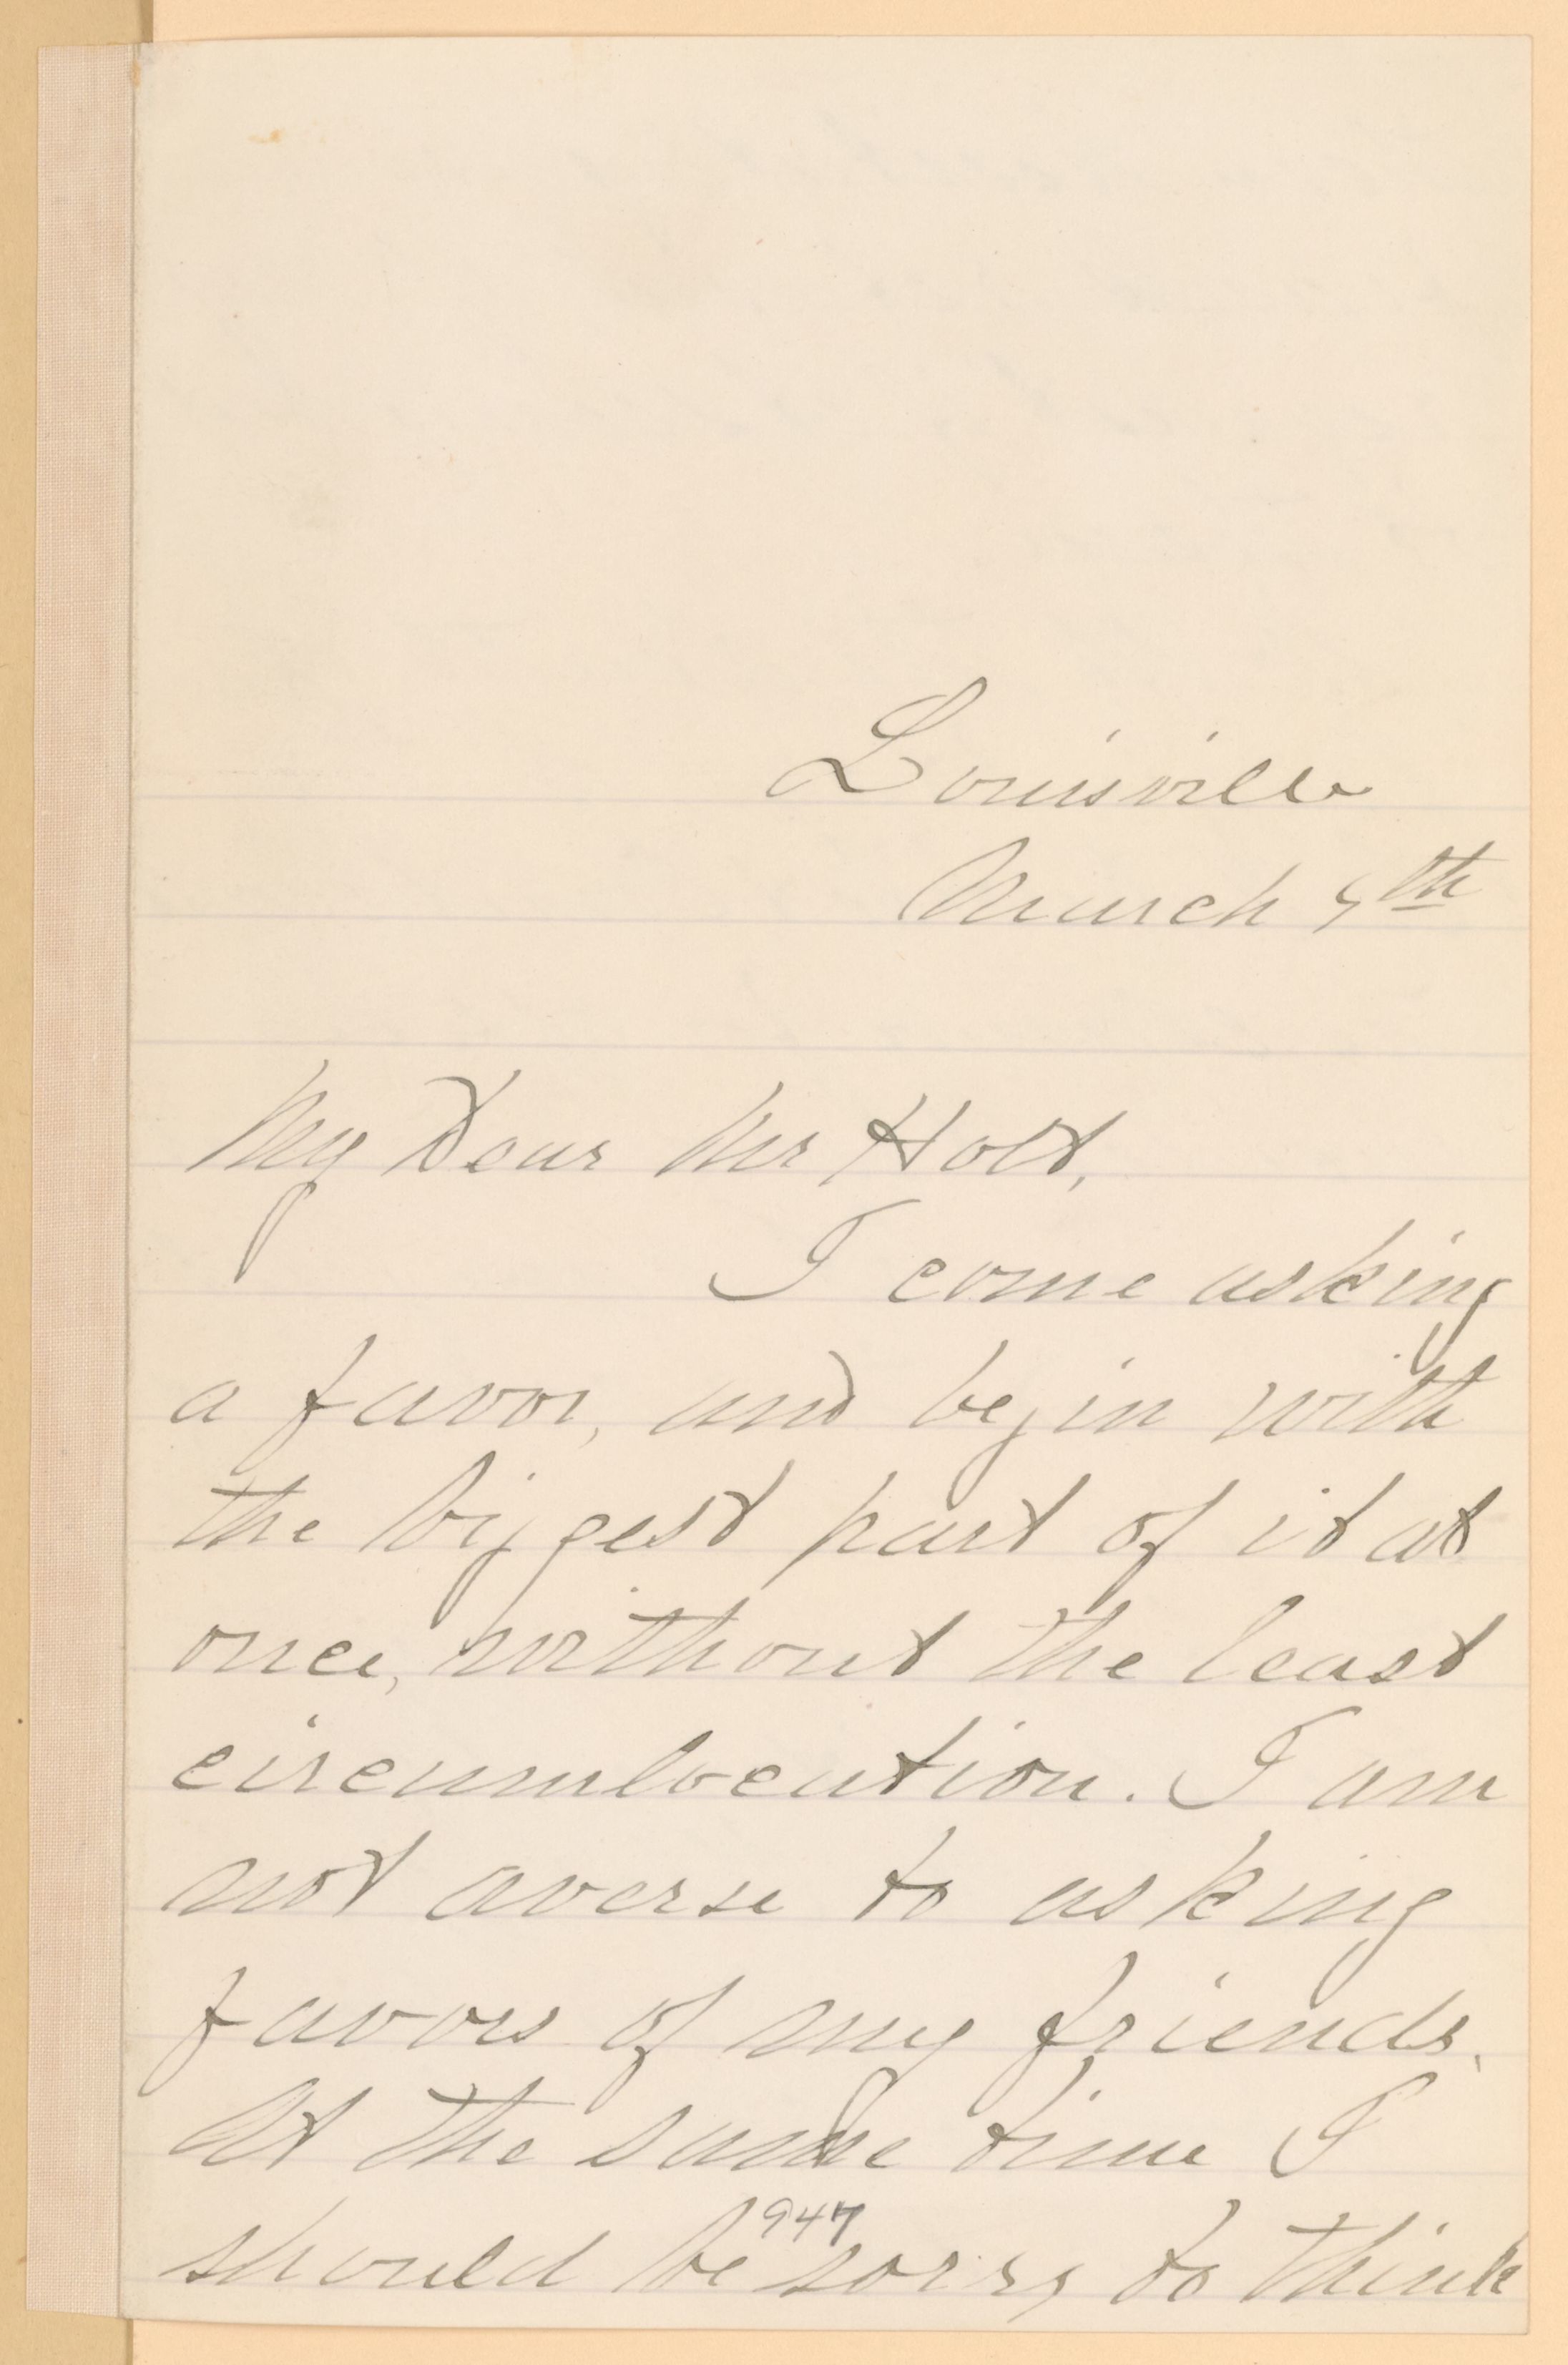 Louisville
March 7th
My Dear Mr Holt,
I come asking
a favor, and begin with
the biggest part of it at
once, without the least
circumlocution. I am
not averse to asking
favors of my friends.
At the same time I
947
should be sorry to think